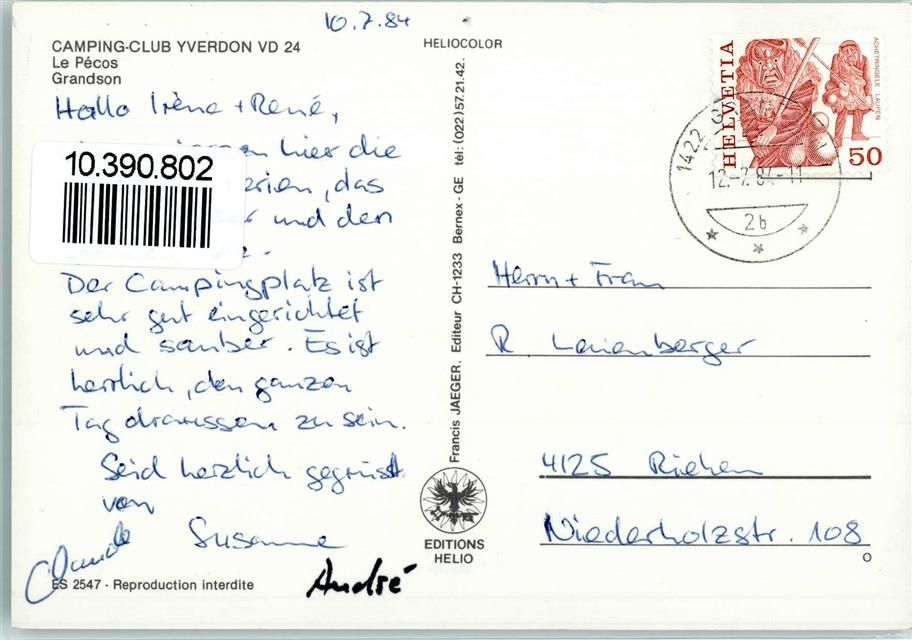 10.7.84
CAMPING-CLUB YVERDON VD 24
Le Pécos
Grandson
Hallo Irène + René,
hier die
10.390.802
das
und den
Der Campingplatz ist
sehr gut eingerichtet
und sauber. Es ist
herrlich, den ganzen
Tag draussen zu sein.
Seid herzlich gegrüsst
von
Claude Susanne
André
ES 2547 - Reproduction interdite
HELIOCOLOR
Francis JAEGER, Editeur CH-1233 Bernex - GE tél: (022) 57.21.42.
EDITIONS
HELIO
HELVETIA
ACHETRINGELE LAUPEN
50
1422
12.-7.84-11
2b
Herrn + Frau
R. Leuenberger
4125 Riehen
Niederholzstr. 108